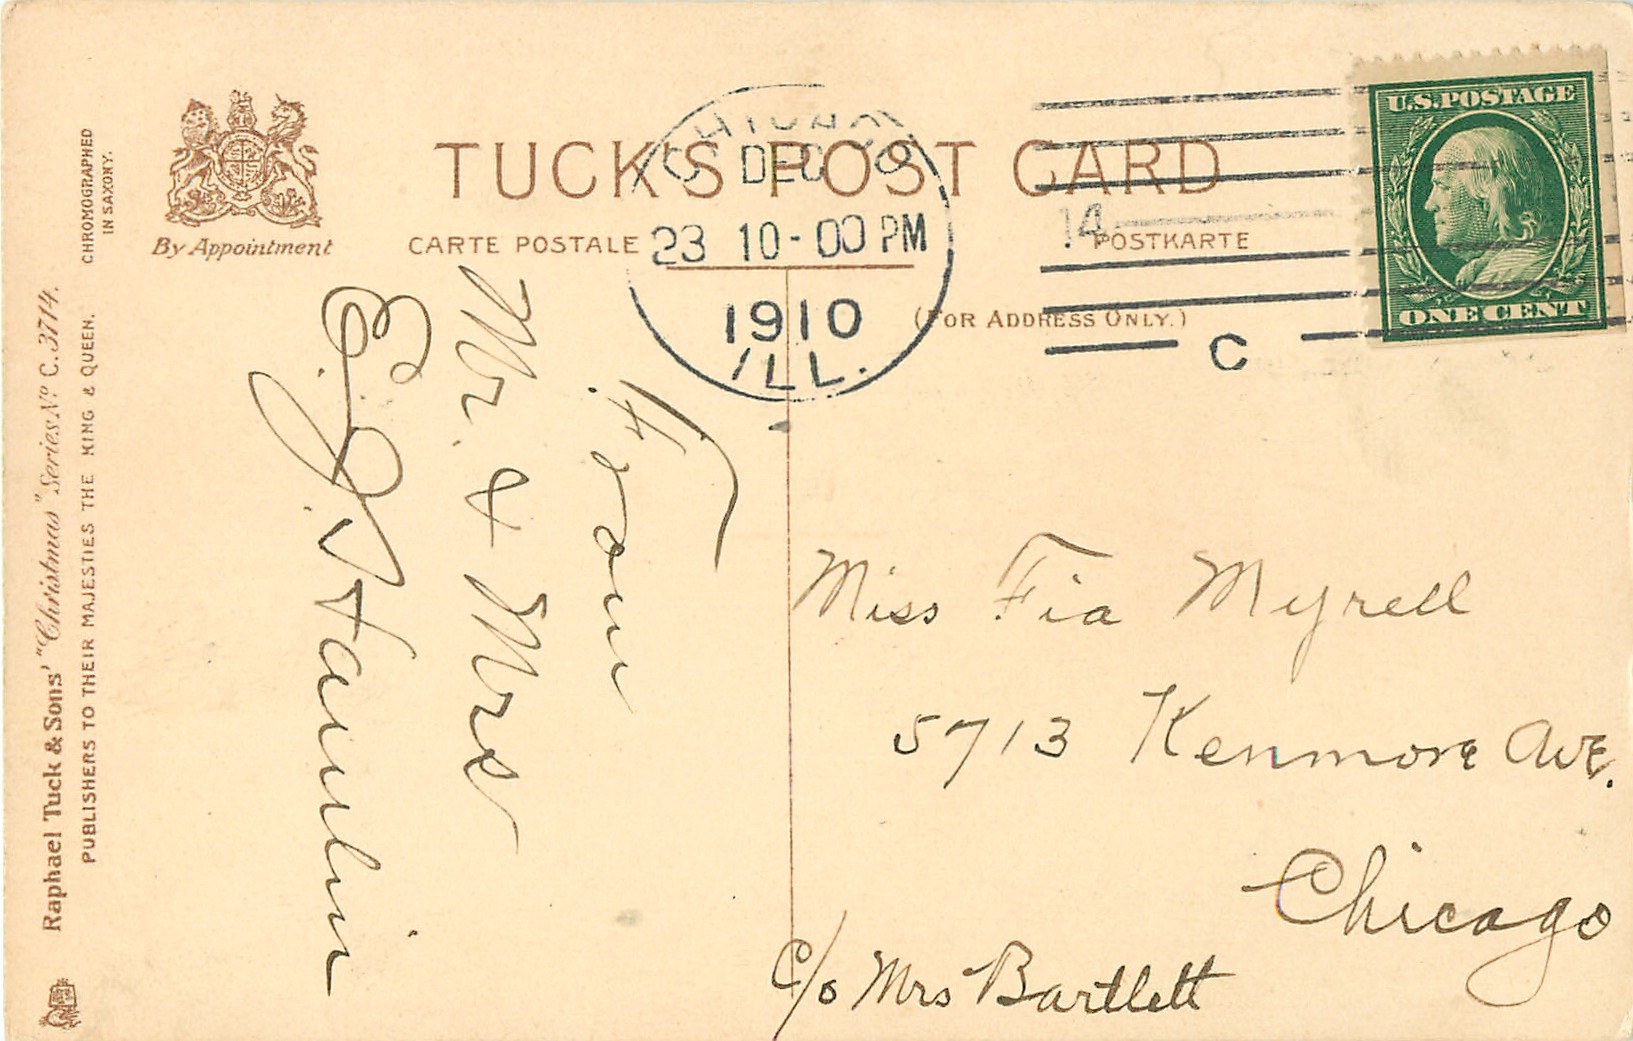 CHROMOGRAPHED
IN SAXONY.
Raphael Tuck & Sons' "Christmas" Series Nº C. 3714.
PUBLISHERS TO THEIR MAJESTIES THE KING & QUEEN.
By Appointment
TUCK'S POST CARD
CARTE POSTALE
POSTKARTE
(FOR ADDRESS ONLY.)
DEC
23 10-00 PM
1910
ILL.
14
C
U.S. POSTAGE
ONE CENT
From
Mr. & Mrs
E. J. Hamlin
Miss Fia Myrell
5713 Kenmore Ave.
Chicago
c/o Mrs Bartlett